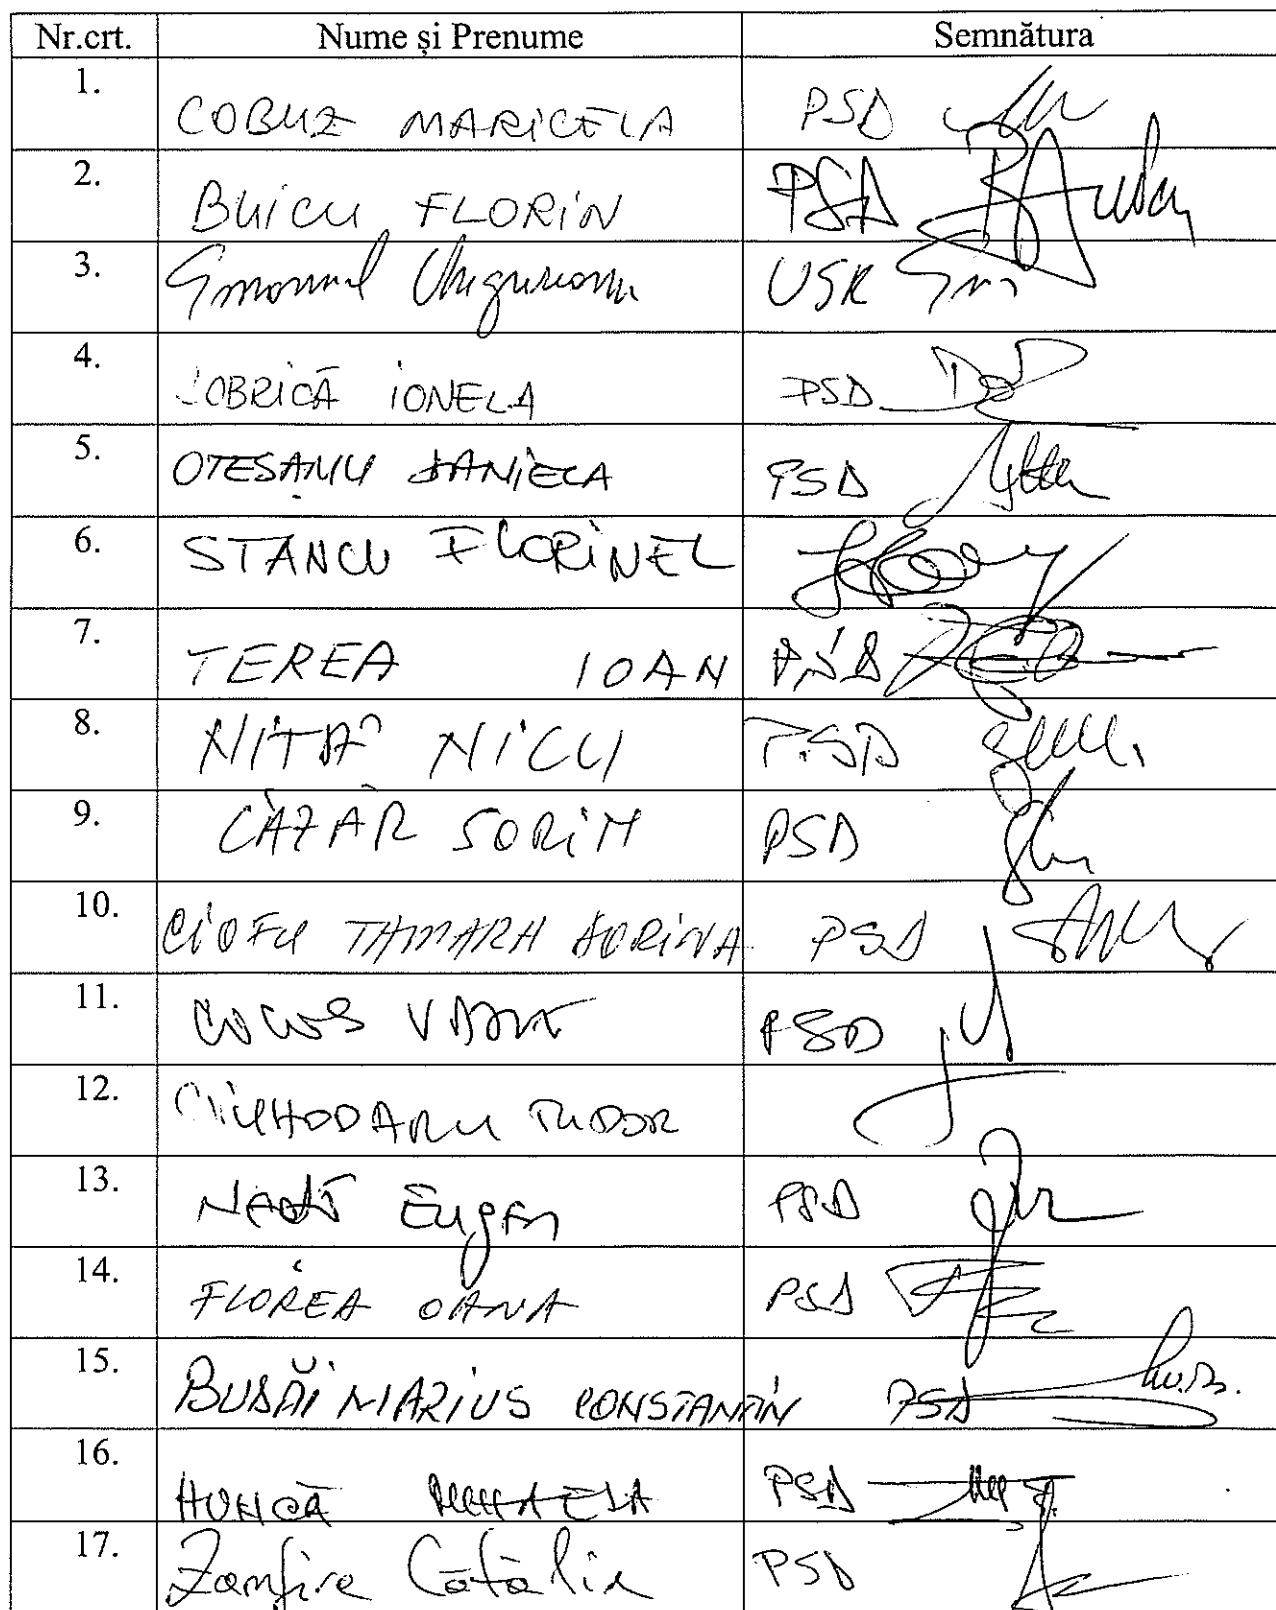 Nr.crt. Nume și Prenume Semnătura
1. COBUZ MARICELA PSD
2. BUICU FLORIN PSD
3. Emanuel Ungureanu USR
4. DOBRICĂ IONELA PSD
5. OTEȘANU DANIELA PSD
6. STANCU FLORINEL
7. TEREA IOAN PSD
8. NIȚĂ NICU PSD
9. LAZĂR SORIN PSD
10. CIOFU TAMARA DORINA PSD
11. COCOȘ VASILE PSD
12. CIUHODARU TUDOR
13. Eugen PSD
14. FLOREA OANA PSD
15. BUDĂI MARIUS CONSTANTIN PSD
16. HUNCĂ MIHAELA PSD
17. Zamfira Cătălin PSD